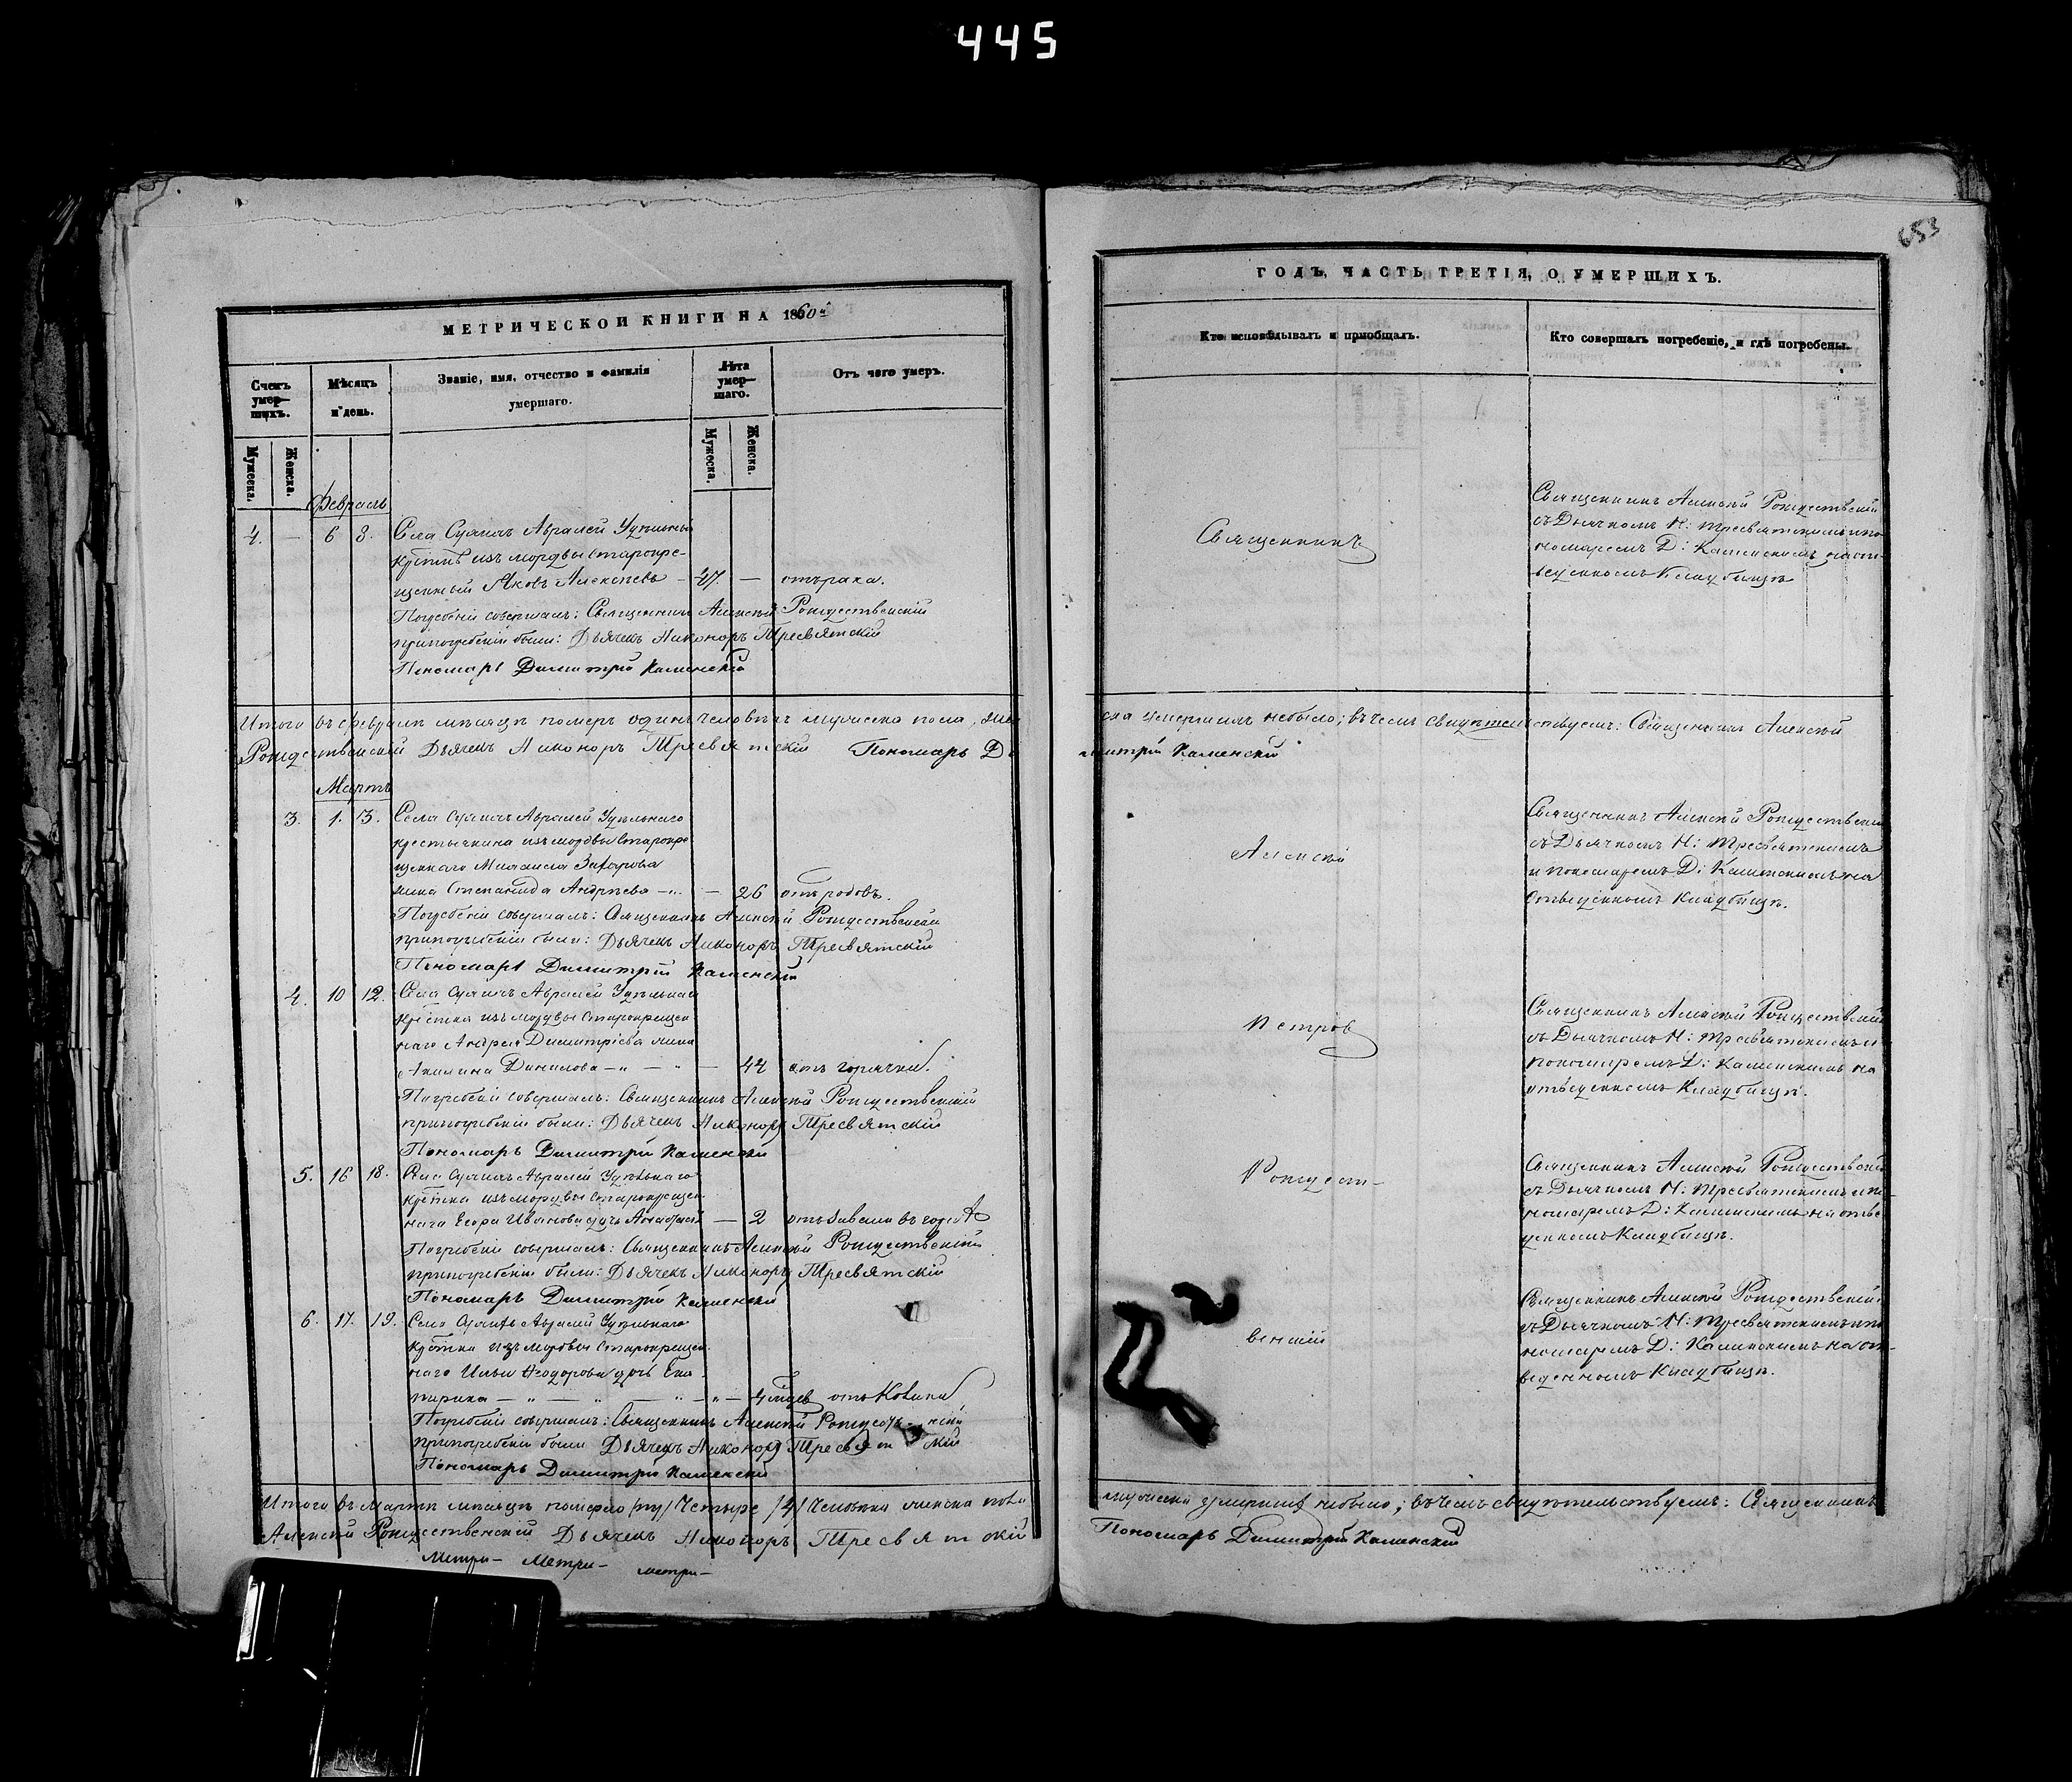 445
653
МЕТРИЧЕСКОЙ КНИГИ НА 1860й
Счетъ умер—шихъ.
Мѣсяцъ и день.
Званіе, имя, отчество и фамилія умершаго.
Лѣта умер—шаго.
Отъ чего умеръ.
Мужеска.
Женска.
Мужеска.
Женска.
Февраль
4. — 6 8. Села Авралей Удѣльный
изъ мордвы старокре-
щенный Яковъ Алексѣевъ — 47. — отъ рака.
Погребеніе совершалъ: Священникъ Алексѣй Рождественскій
при погребеніи были: Дьячекъ Никоноръ Тресвятскій
Пономарь Димитрій Каменскій
Итого въ февралѣ мѣсяцѣ померъ одинъ человѣкъ мужеска пола, жен
Рождественскій Дьячекъ Никоноръ Тресвятскій Пономарь Ди
Мартъ
3. 1. 3. Села Авралей Удѣльнаго
крестьянина изъ мордвы старокре
щеннаго Михаила Захарова
жена Степанида Андреева — — 26 отъ родовъ.
Погребеніе совершалъ: Священникъ Алексѣй Рождественскій
при погребеніи были: Дьячекъ Никоноръ Тресвятскій
Пономарь Димитрій Каменскій
4. 10 12. Села Авралей Удѣльнаго
изъ мордвы старокрещен
наго Андрея Димитріева жена
Акилина Данилова — — — 44 отъ горячки.
Погребеніе совершалъ: Священникъ Алексѣй Рождественскій
при погребеніи были: Дьячекъ Никоноръ Тресвятскій
Пономарь Димитрій Каменскій
5. 16 18. Села Авралей Удѣльнаго
изъ мордвы старокрещен
наго Егора Иванова дочь — 2
Погребеніе совершалъ: Священникъ Алексѣй Рождественскій
при погребеніи были: Дьячекъ Никоноръ Тресвятскій
Пономарь Димитрій Каменскій
6. 17. 19. Села Авралей Удѣльнаго
изъ мордвы старокрещен
наго Ильи Ѳеодорова дочь Ека
терина — — — 4
Погребеніе совершалъ: Священникъ Алексѣй
при погребеніи были Дьячекъ Никоноръ
Пономарь Димитрій Каменскій
Итого въ Мартѣ мѣсяцѣ померло четыре /4/ человѣка женска пола
Алексѣй Рождественскій Дьячекъ Никоноръ Тресвятскій
Метри— Метри— метри—
ГОДЪ, ЧАСТЬ ТРЕТІЯ, О УМЕРШИХЪ.
Кто исповѣдывалъ и пріобщалъ.
Кто совершалъ погребеніе, и гдѣ погребены.
Священникъ
Священникъ Алексѣй Рождественскій
съ Дьячкомъ Н: Тресвятскимъ и по
номаремъ Д: Каменскимъ на от-
веденномъ кладбищѣ
ска умершихъ небыло; въ чемъ свидѣтельствуемъ: Священникъ Алексѣй
митрій Каменскій
Алексѣй
Священникъ Алексѣй Рождественскій
съ Дьячкомъ Н: Тресвятскимъ
и пономаремъ Д: Каменскимъ на
отведенномъ кладбищѣ.
Петров
Священникъ Алексѣй Рождественскій
съ Дьячкомъ Н: Тресвятскимъ и
пономаремъ Д: Каменскимъ на
отведенномъ кладбищѣ.
Рождест—
Священникъ Алексѣй Рождественскій
съ Дьячкомъ Н: Тресвятскимъ и по—
номаремъ Д: Каменскимъ на отве
денномъ кладбищѣ.
венскій
Священникъ Алексѣй Рождественскій
съ Дьячкомъ Н: Тресвятскимъ и по
номаремъ Д: Каменскимъ на от—
веденномъ кладбищѣ.
мужеска умершихъ небыло; въ чемъ свидѣтельствуемъ: Священникъ
Пономарь Димитрій Каменскій